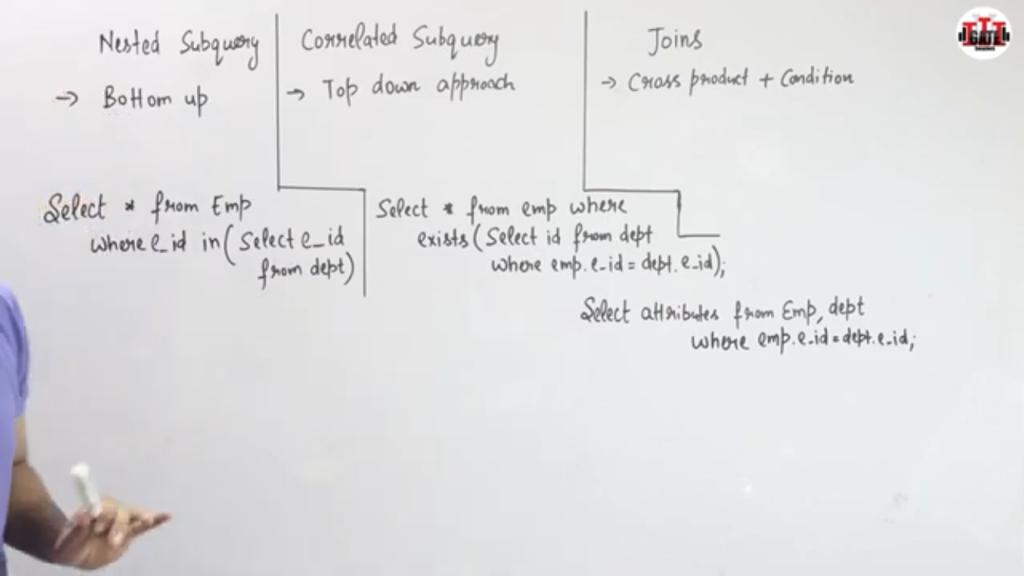 Nested Subquery
→ Bottom up
Select * from Emp
where e_id in (Select e_id
from dept)
Correlated Subquery
→ Top down approach
Select * from emp where
exists (Select id from dept
where emp.e_id = dept.e_id);
Joins
→ Cross product + Condition
Select attributes from Emp, dept
where emp.e_id = dept.e_id;
GATE